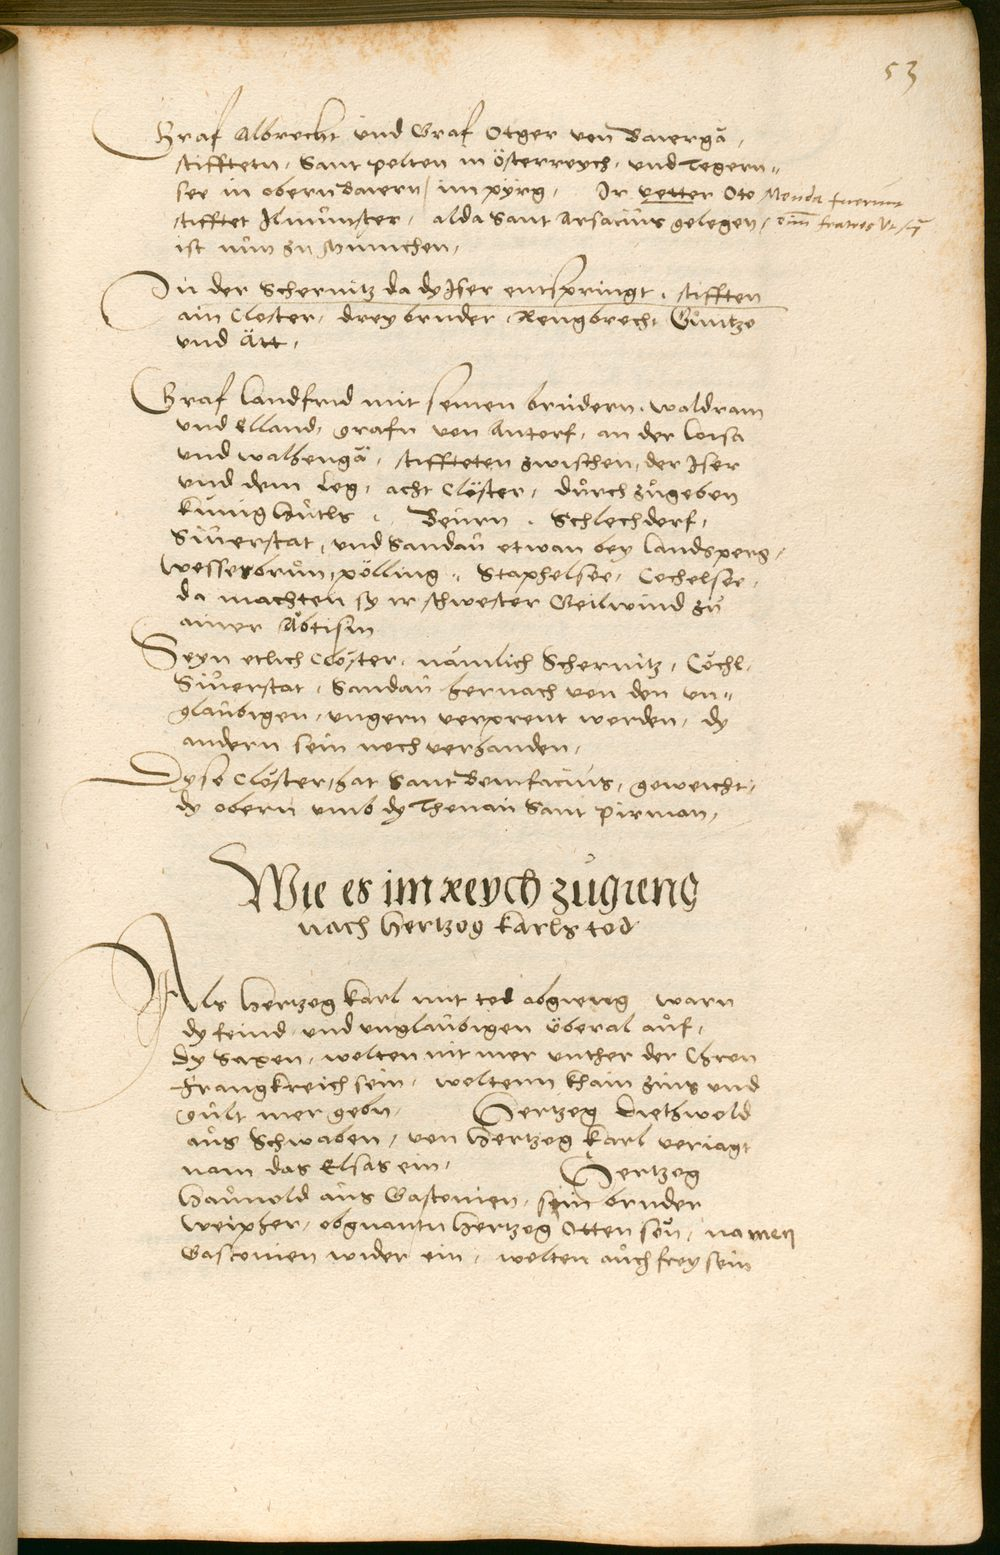 53
Graf Albrecht und Graf Otger von Baiergä,
stifftetn, Sant pelten in Österreych, und Tegern=
see in obernbaiern / im pyrg, Ir vetter Oto Menda fuerunt
stifftet Ilmünster, alda Sant Arsacius gelegen, enim fratres ut
ist nun zu Munichen,
In der Schernitz da dy Iser entspringt, stifften
ain Closter, drey bruder, Rengbrecht Guntzo
und Ätt,
Graf Landfrid mit seinen brüdern, waldram
und Elland, grafn von Antorf, an der Loisa
und walhengä, stiffteten zwischen, der Iser
und dem Leg, acht Clöster, durch zůgeben
Kunig Beirn, Schlechdorf,
Siverstat, und Sandau etwan bey Landsperg,
wessesbrun, pölling, Staphelsee, Cochelsee,
da machten sy ir schwester Geilwind zů
ainer Äbtisin
Seyn etlich Clöster, nämlich Schernitz, Cöchl,
Siverstat, Sandau hernach von den un=
glaubigen, ungern verprent worden, dy
andern sein noch verhanden,
Dyse Clöster, hat Sant Bonifacius, geweicht,
dy obern umb dy Thonau Sant Pirman,
Wie es im reych zugieng
nach Hertzog Karls tod
Als Hertzog Karl mit tod abgieng warn
dy feind, und unglaubigen überal auf,
dy Saxen, wolten nit mer unther der Chron
Frangkreich sein, woltenn khain zins und
gült mer gebn, Hertzog Diethwold
aus Schwaben, von Hertzog Karl veriagt
nam das Elsas ein, Hertzog
Haunold aus Gasconien, sein bruder
Weipher, obgnantn Hertzog Otten sön, namen
Gasconien wider ein, wolten auch frey sein